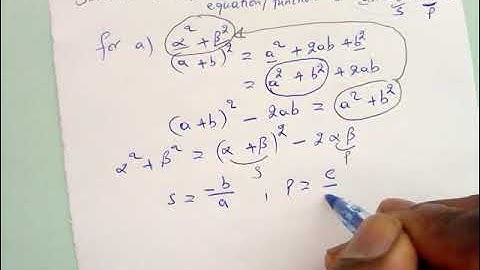 equation/function
S P
for a) α² + β²
(a + b)² = a² + 2ab + b²
= a² + b² + 2ab
(a + b)² - 2ab = a² + b²
α² + β² = (α + β)² - 2αβ
S P
S = -b/a , P = c